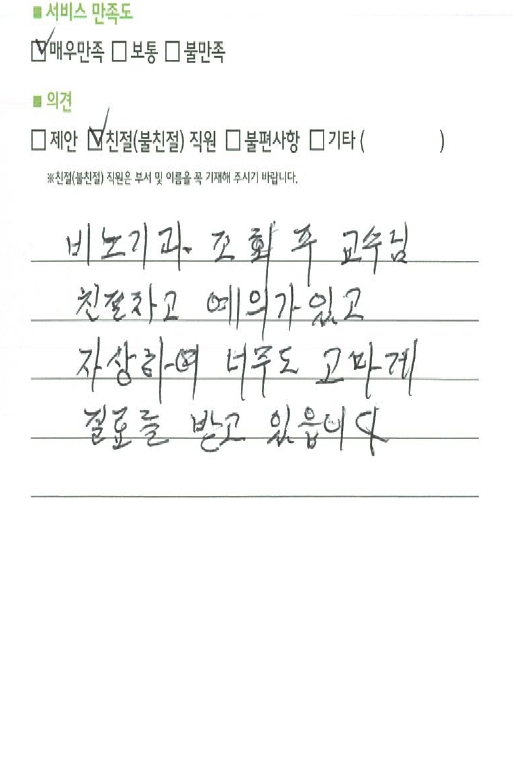 ■ 서비스 만족도
☑매우만족 □보통 □불만족
■ 의견
□제안 ☑친절(불친절) 직원 □불편사항 □기타 ( )
※친절(불친절) 직원은 부서 및 이름을 꼭 기재해 주시기 바랍니다.
비뇨기과. 조희주 교수님
친절하고 예의가 있고
자상하여 너무도 고마게
진료를 받고 있읍니다